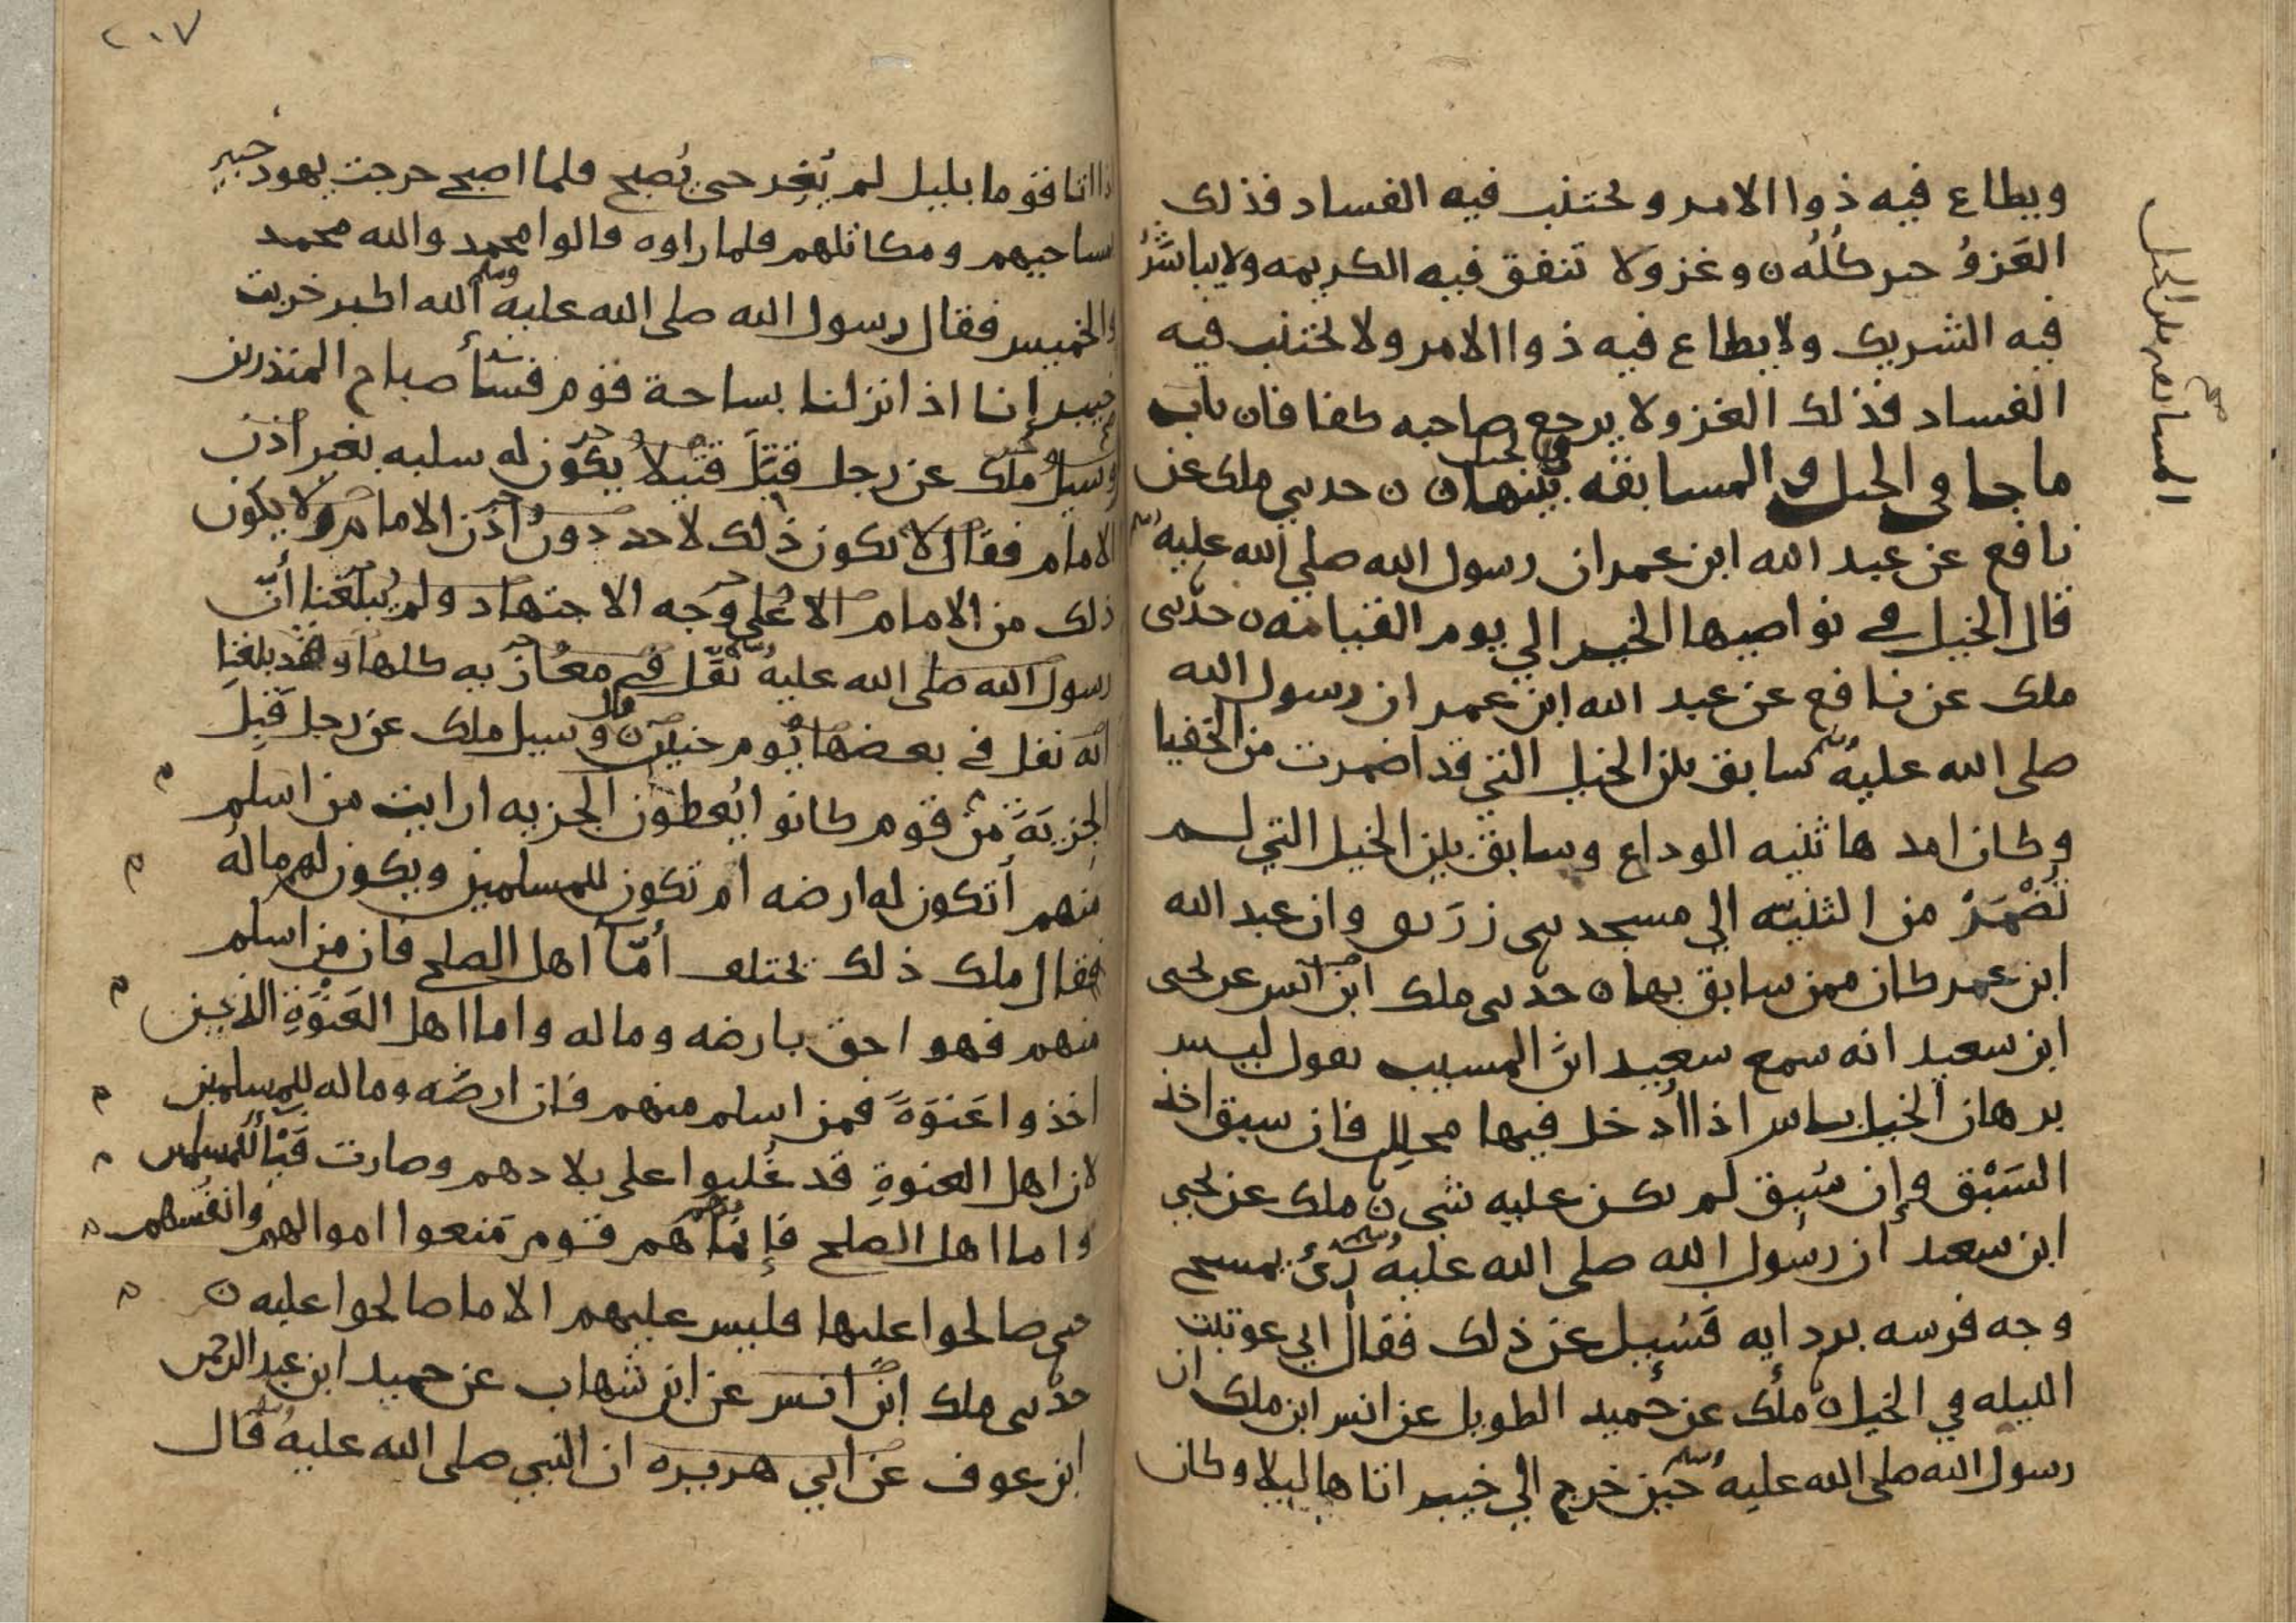 ويطاع فيه ذوا الامر ويجتنب فيه الفساد فذلك
الغَزوُ خير كُلُه ن وغزو لا تنفق فيه الكريمه ولا يياسَرُ
فيه الشريك ولا يطاع فيه ذوا الامر ولا يجتنب فيه
الفساد فذلك الغزو لا يرجع صاحبه كفافا ن باب
ما جا في الخيل والمسابقه بينها ن ن حدثني ملك عن
نافع عن عبد الله ابن عمر ان رسول الله صلى الله عليه وسلم
قال الخيل في نواصيها الخير الي يوم القيامه ن حدثني
ملك عن نافع عن عبد الله ابن عمر ان رسول الله
صلى الله عليه وسلم سابق بين الخيل التي قد اضمرت من الحفيا
وكان امدها ثنيه الوداع وسابق بين الخيل التي لم
تُضْمَرْ من الثنيه الي مسجد بني زرَيق وان عبد الله
ابن عمر كان ممن سابق بها ن حدثني ملك ابن انس عن يحيى
ابن سعيد انه سمع سعيد ابن المسيب يقول ليس
برهان الخيل باس اذا اُدخل فيها محلِل فان سبق اخذ
السَبْق وإن سُبِق لم يكن عليه شي ن ملك عن يحيي
ابن سعيد ان رسول الله صلى الله عليه وسلم رئ يمسح
وجه فرسه بردايه فسُيل عن ذلك فقال اني عوتبت
الليله في الخيل ن ملك عن حُميد الطويل عن انس ابن ملك ان
رسول الله صلى الله عليه وسلم حين خرج الي خيبر اتاها ليلا وكان
المسابقه بين الخيل
٢٠٧
اذا اتا قوما بليل لم يُغِر حتى يُصبح فلما اصبح خرجت يهود خيبر
بمساحيهم ومكاتلهم فلما راوه قالوا محمد والله محمد
والخميس فقال رسول الله صلى الله عليه وسلم الله اكبر خربت
خيبر إنا اذا نزلنا بساحة قوم فسأ صباح المنذرين
وسيل ملك عن رجل قتل قتيلا يكون له سلبه بغير اذن
الامام فقال لا يكون ذلك لاحد دون اذن الامام ولا يكون
ذلك من الامام الا على وجه الاجتهاد ولم يبلغنا أنّ
رسول الله صلى الله عليه وسلم نفّل في مغازيه كلها وقد بلغنا
انه نفل في بعضها يوم حنين ن وسيل ملك عن رجل قبِل
الجزيَةَ من قوم كانوا يُعطون الجزيه ارايت من اسلم
منهم أتكون له ارضه ام تكون للمسلمين ويكون لهم ماله
فقال ملك ذلك يختلف أمّا اهل الصلح فان من اسلم
منهم فهو احق بارضه وماله واما اهل العَنْوَةِ الذين
اخذوا عَنوَةً فمن اسلم منهم فان ارضَه وماله للمسلمين
لان اهل العنوةِ قد غُلبوا على بلادهم وصارت فَيْأً للمسلمين
واما اهل الصلح فإنما هم قوم مَنعوا اموالهم وانفُسهم
حتى صالحوا عليها فليس عليهم الا ما صالحوا عليه ن
حدثني ملك ابن انس عن ابن شهاب عن حميد ابن عبد الرحمن
ابن عوف عن ابي هريره ان النبي صلى الله عليه وسلم قال